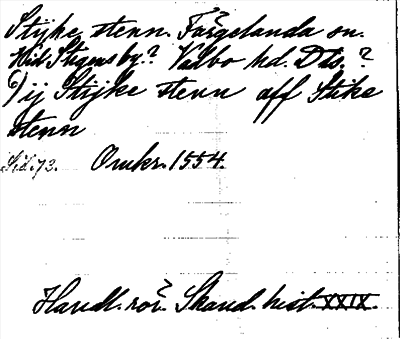 Stijke stenn. Färgelanda sn.
Hid Stigensby.? Valbo hd. Dls.?
6) ij Stijke stenn aff Stike
stenn
Sid. 73. Omkr. 1554.
Handl. rör. Skand. hist. XXIX.